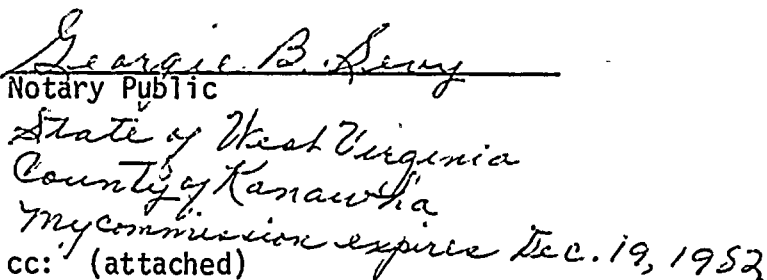 Georgie B.
Notary Public
State of West Virginia
County of Kanawha
My commission expires Dec. 19, 1982
cc: (attached)